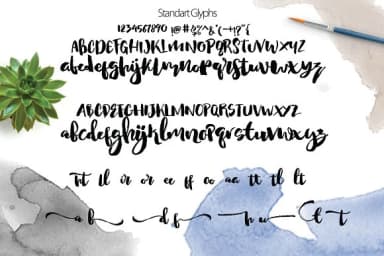 Standart Glyphs
1234567890 !@#$%^&*(-+!?"{
ABCDEFGHIJKLMNOPQRSTUVWXYZ
abcdefghijklmnopqrstuvwxyz
ABCDEFGHIJKLMNOPQRSTUVWXYZ
abcdefghijklmnopqrstuvwxyz
Tt il ir or ee ff co aa tt tl lt
a b d f h u C t